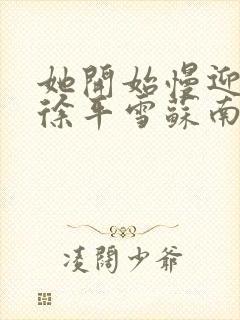 她開始慢迎
徐年雪蘇南
凌闊少爺